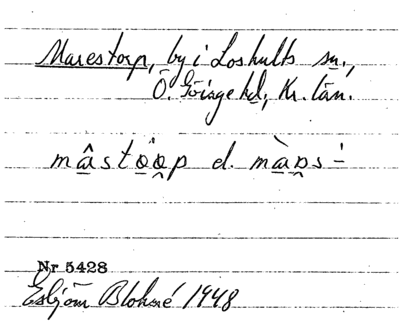 Marestorp, by i Loshults sn.,
Ö. Göinge hd, Kr. län.
Nr 5428
Esbjörn Blohmé 1948